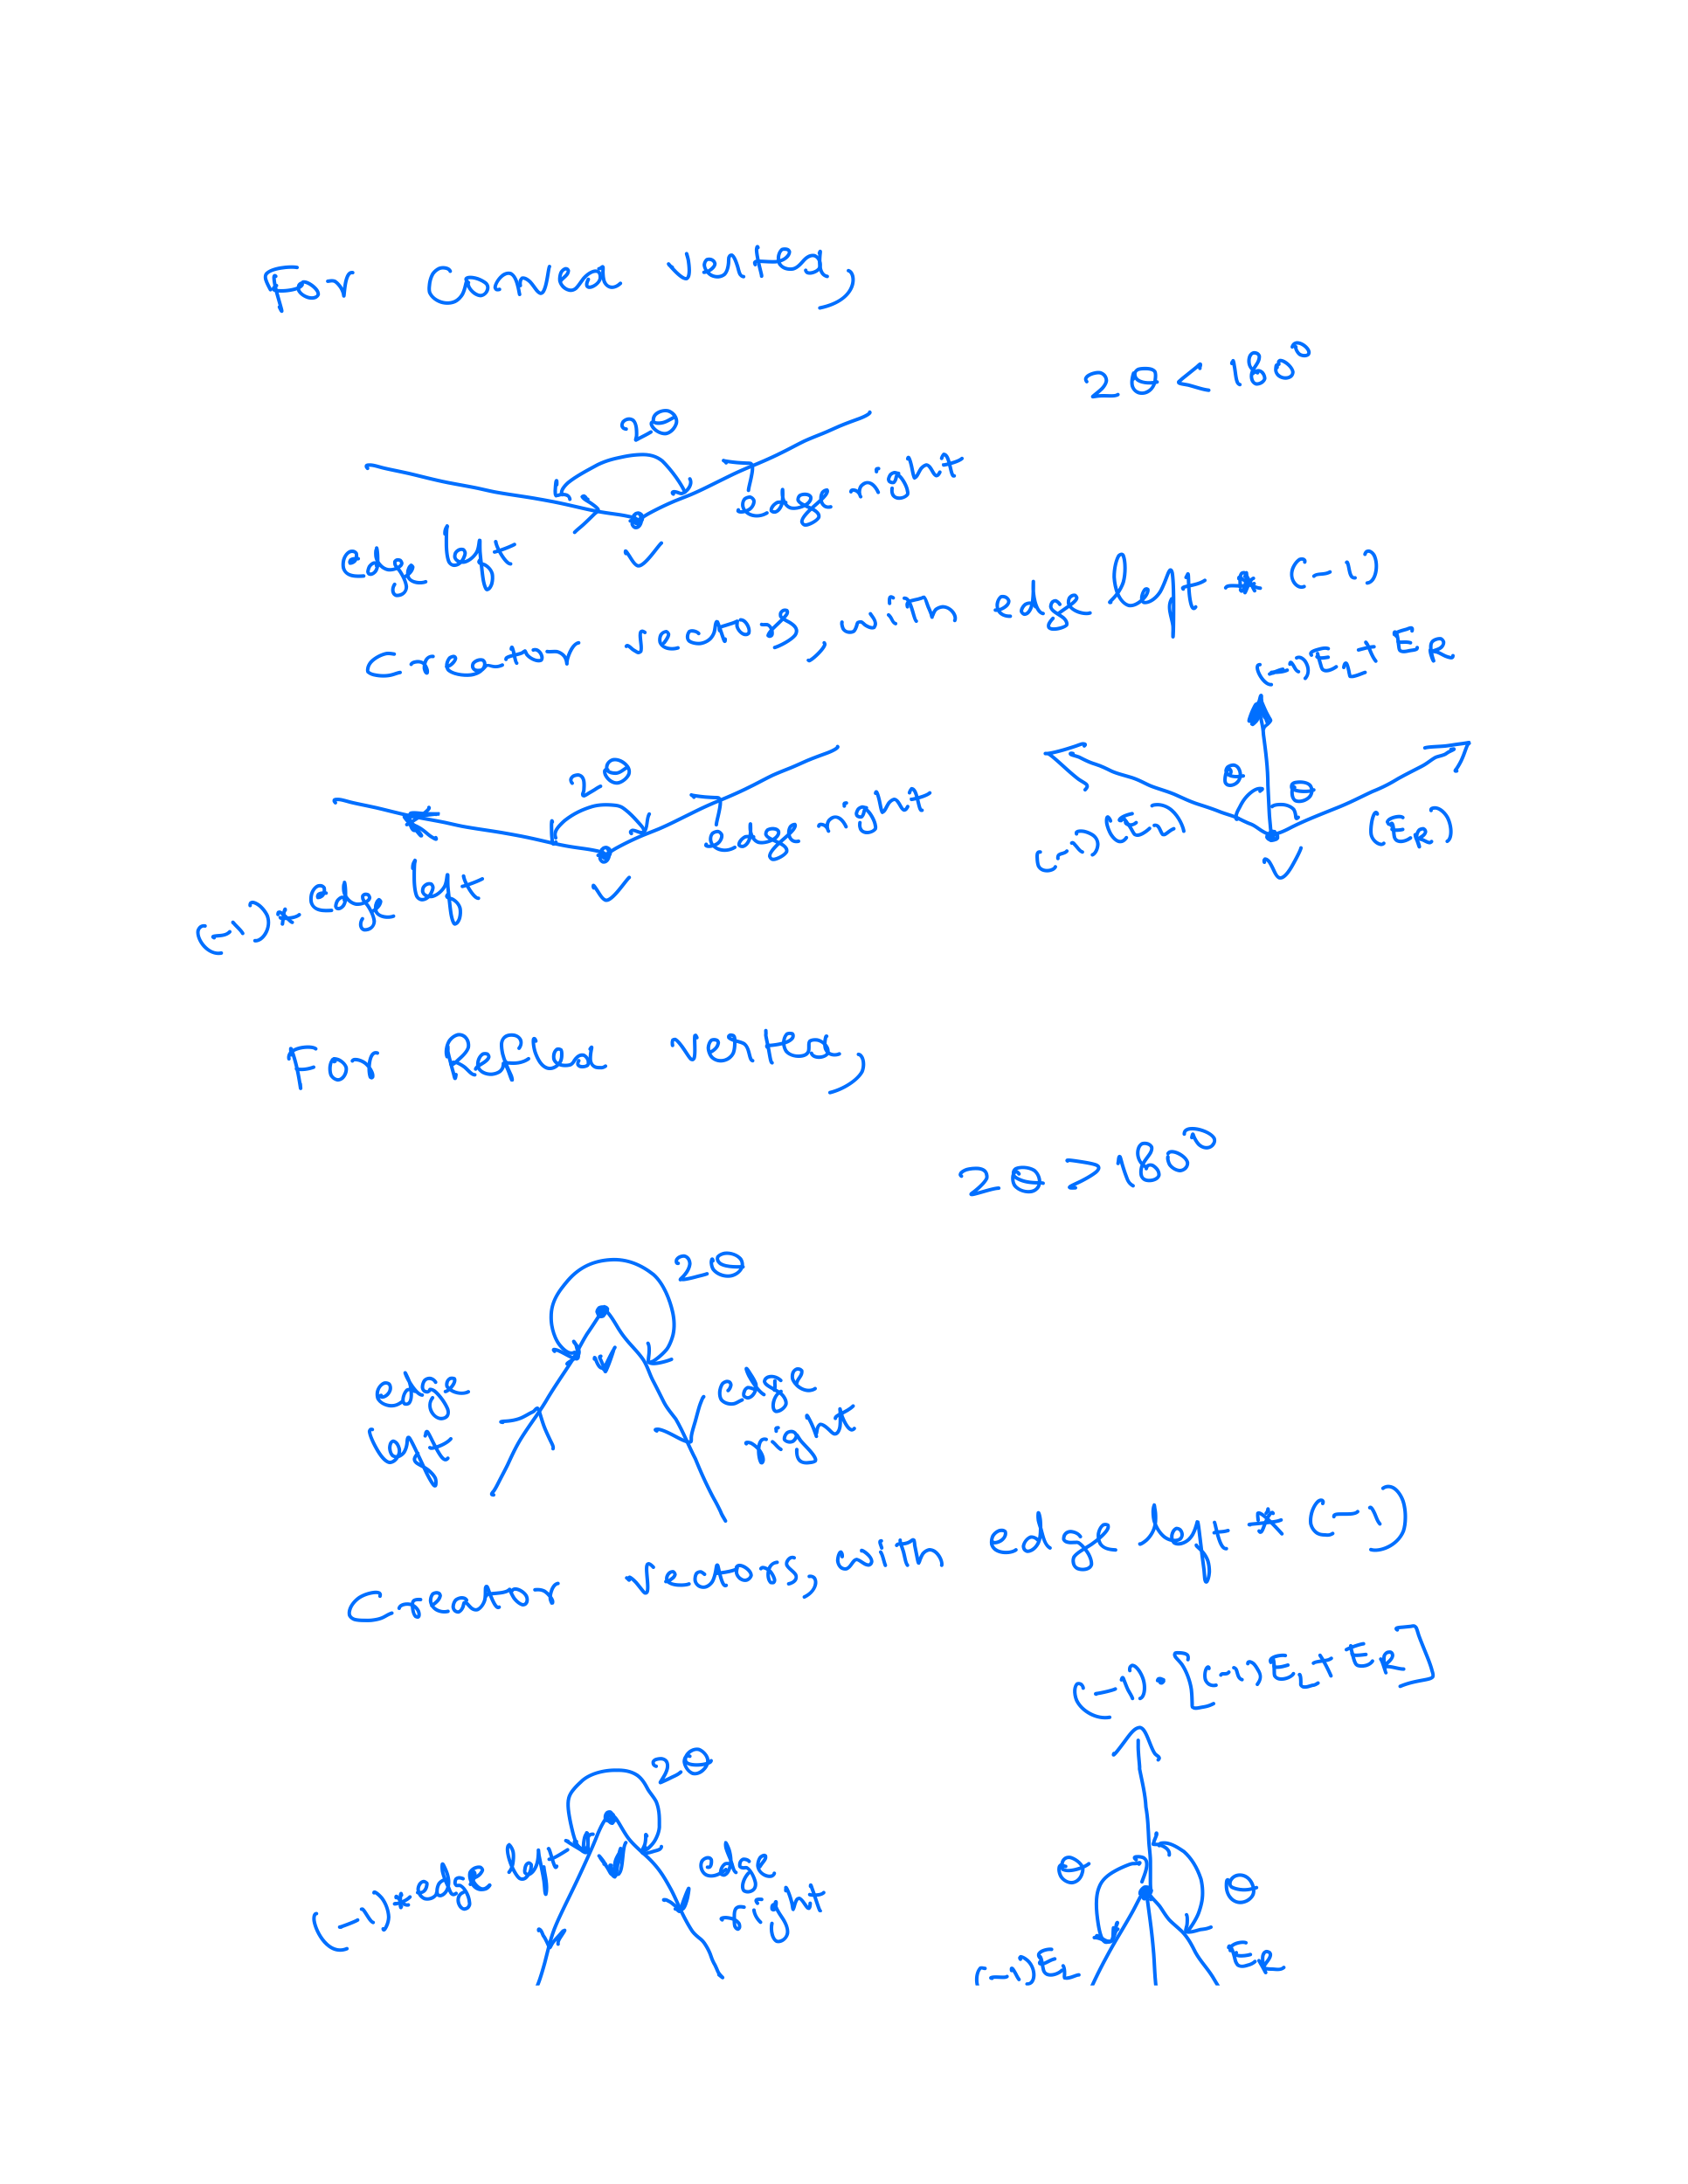 For Convex vertex,
2θ < 180°
2θ
edge right
edge left
v
Creator vectors, with edge left * (-1)
(-1)E_L + E_R
2θ
θ θ
edge right
(-1)(E_L)
(E_R)
v
v
(-1)* edge left
For Reflex vertex,
2θ > 180°
2θ
v
edge left
edge right
Creator vectors, with edge left * (-1)
(-1)·[(-1)E_L + E_R]
2θ
(-1)* edge left
v
edge right
θ
θ
(-1)E_L
E_R